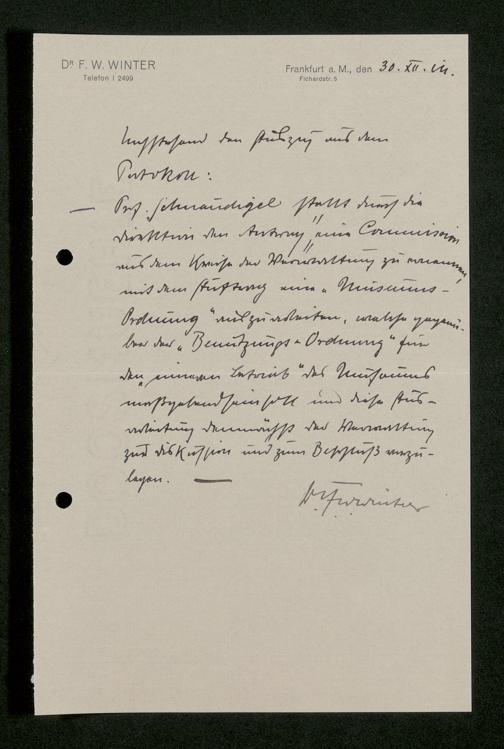 Dr F. W. WINTER
Telefon I 2499
Frankfurt a. M., den 30. XII.
Fichardstr. 5
den Auszug aus dem
Protokoll:
— Prof. Schnaudigel stellt durch die
Direktion den Antrag „eine Commission
aus dem Kreise der Verwaltung zu ernennen,
mit dem Auftrag eine „Museums-
Ordnung" auszuarbeiten, welche gegenü-
ber der „Benutzungs-Ordnung" für
den „inneren Betrieb" des Museums
maßgebend sein soll und diese Aus-
arbeitung demnächst der Verwaltung
zur Diskussion und zum Beschluß vorzu-
legen. —
Dr FWWinter